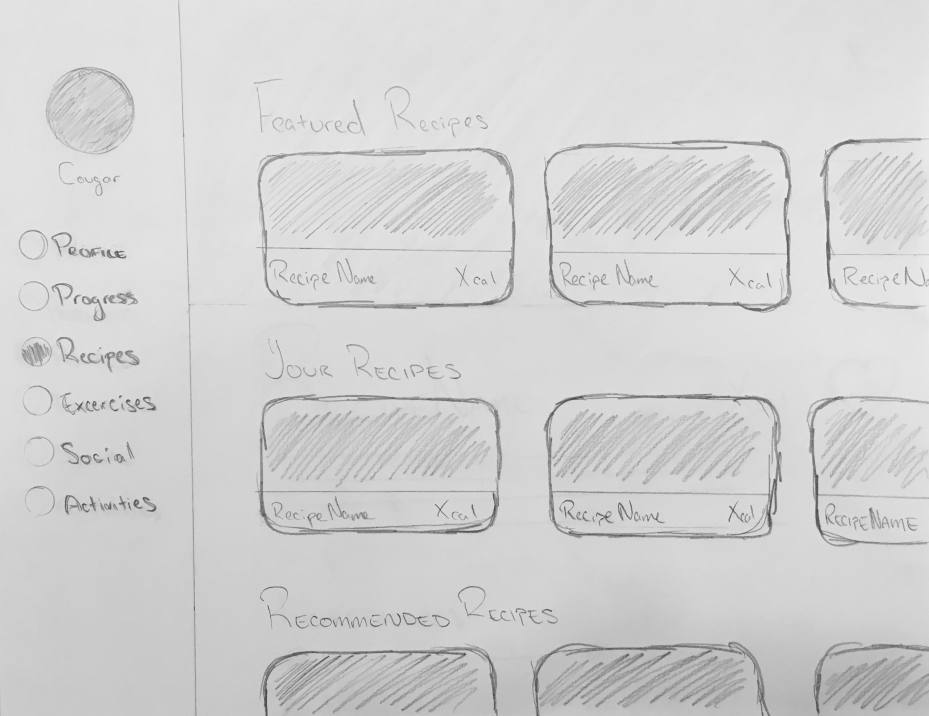 Cougar
Profile
Progress
Recipes
Excercises
Social
Activities
Featured Recipes
Recipe Name Xcal
Recipe Name Xcal
Recipe Na
Your Recipes
Recipe Name Xcal
Recipe Name Xcal
Recipe Name
Recommended Recipes